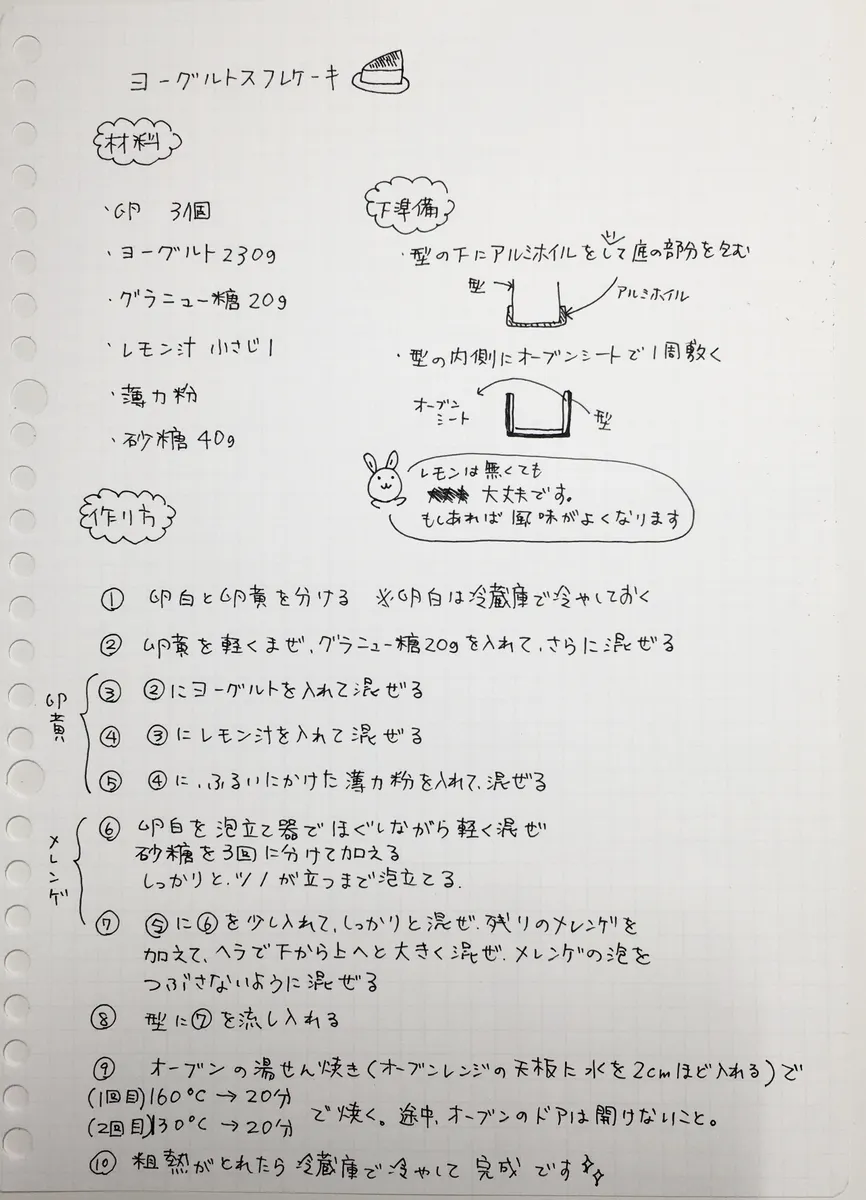 ヨーグルトスフレケーキ
材料
・卵 3個
・ヨーグルト230g
・グラニュー糖20g
・レモン汁 小さじ1
・薄力粉
・砂糖40g
下準備
・型の下にアルミホイルをして底の部分を包む
型
アルミホイル
・型の内側にオーブンシートで1周敷く
オーブン
シート
型
レモンは無くても
大丈夫です。
もしあれば風味がよくなります
作り方
① 卵白と卵黄を分ける ※卵白は冷蔵庫で冷やしておく
② 卵黄を軽くまぜ、グラニュー糖20gを入れて、さらに混ぜる
卵黄
③ ②にヨーグルトを入れて混ぜる
④ ③にレモン汁を入れて混ぜる
⑤ ④に、ふるいにかけた薄力粉を入れて、混ぜる
メレンゲ
⑥ 卵白を泡立て器でほぐしながら軽く混ぜ
砂糖を3回に分けて加える
しっかりと、ツノが立つまで泡立てる.
⑦ ⑤に⑥を少し入れて、しっかりと混ぜ、残りのメレンゲを
加えて、ヘラで下から上へと大きく混ぜ、メレンゲの泡を
つぶさないように混ぜる
⑧ 型に⑦を流し入れる
⑨ オーブンの湯せん焼き(オーブンレンジの天板に水を2cmほど入れる)で
(1回目)160℃→20分
(2回目)130℃→20分 で焼く。途中、オーブンのドアは開けないこと。
⑩ 粗熱がとれたら冷蔵庫で冷やして 完成です